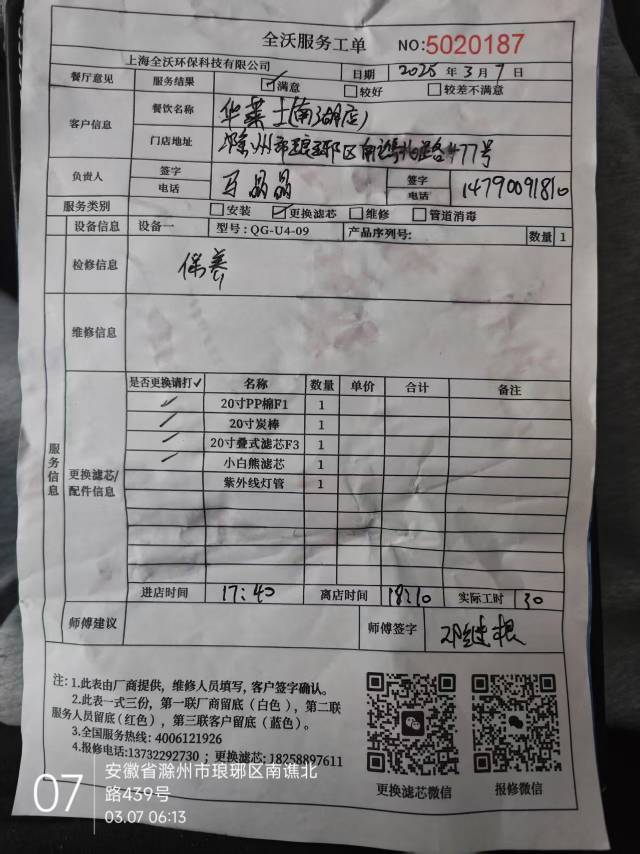 全沃服务工单 NO:5020187
上海全沃环保科技有限公司 日期 2025 年 3 月 7 日
餐厅意见 服务结果 ☑满意 □较好 □较差不满意
客户信息 餐饮名称 华莱士(南湖店)
门店地址 滁州市琅琊区南谯北路477号
负责人 签字 马晶晶 签字
电话 电话 14790091810
服务类别 □安装 ☑更换滤芯 □维修 □管道消毒
设备信息 设备一 型号:QG-U4-09 产品序列号: 数量 1
检修信息 保养
维修信息
服务信息
更换滤芯/配件信息
是否更换请打✓ 名称 数量 单价 合计 备注
✓ 20寸PP棉F1 1
✓ 20寸炭棒 1
✓ 20寸叠式滤芯F3 1
✓ 小白熊滤芯 1
紫外线灯管 1
进店时间 17:40 离店时间 18:10 实际工时 30
师傅建议 师傅签字 邓继根
注: 1.此表由厂商提供，维修人员填写，客户签字确认。
2.此表一式三份，第一联厂商留底（白色），第二联
服务人员留底(红色），第三联客户留底（蓝色）。
3.全国服务热线: 4006121926
4.报修电话:13732292730；更换滤芯: 18258897611
更换滤芯微信 报修微信
07
安徽省滁州市琅琊区南谯北
路439号
03.07 06:13